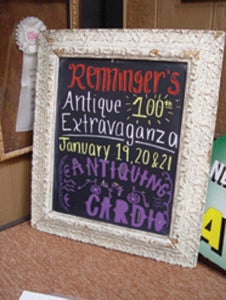 Renninger's
Antique 100th
Extravaganza
January 19, 20 & 21
ANTIQUING
is my
CARDIO